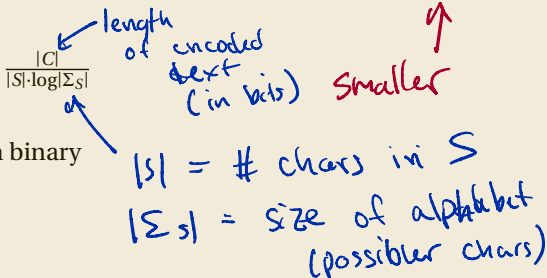 length
of encoded
text
(in bits)
|C|
|S|·log|Σ_S|
smaller
n binary
|S| = # chars in S
|Σ_S| = size of alphabet
(possibler chars)